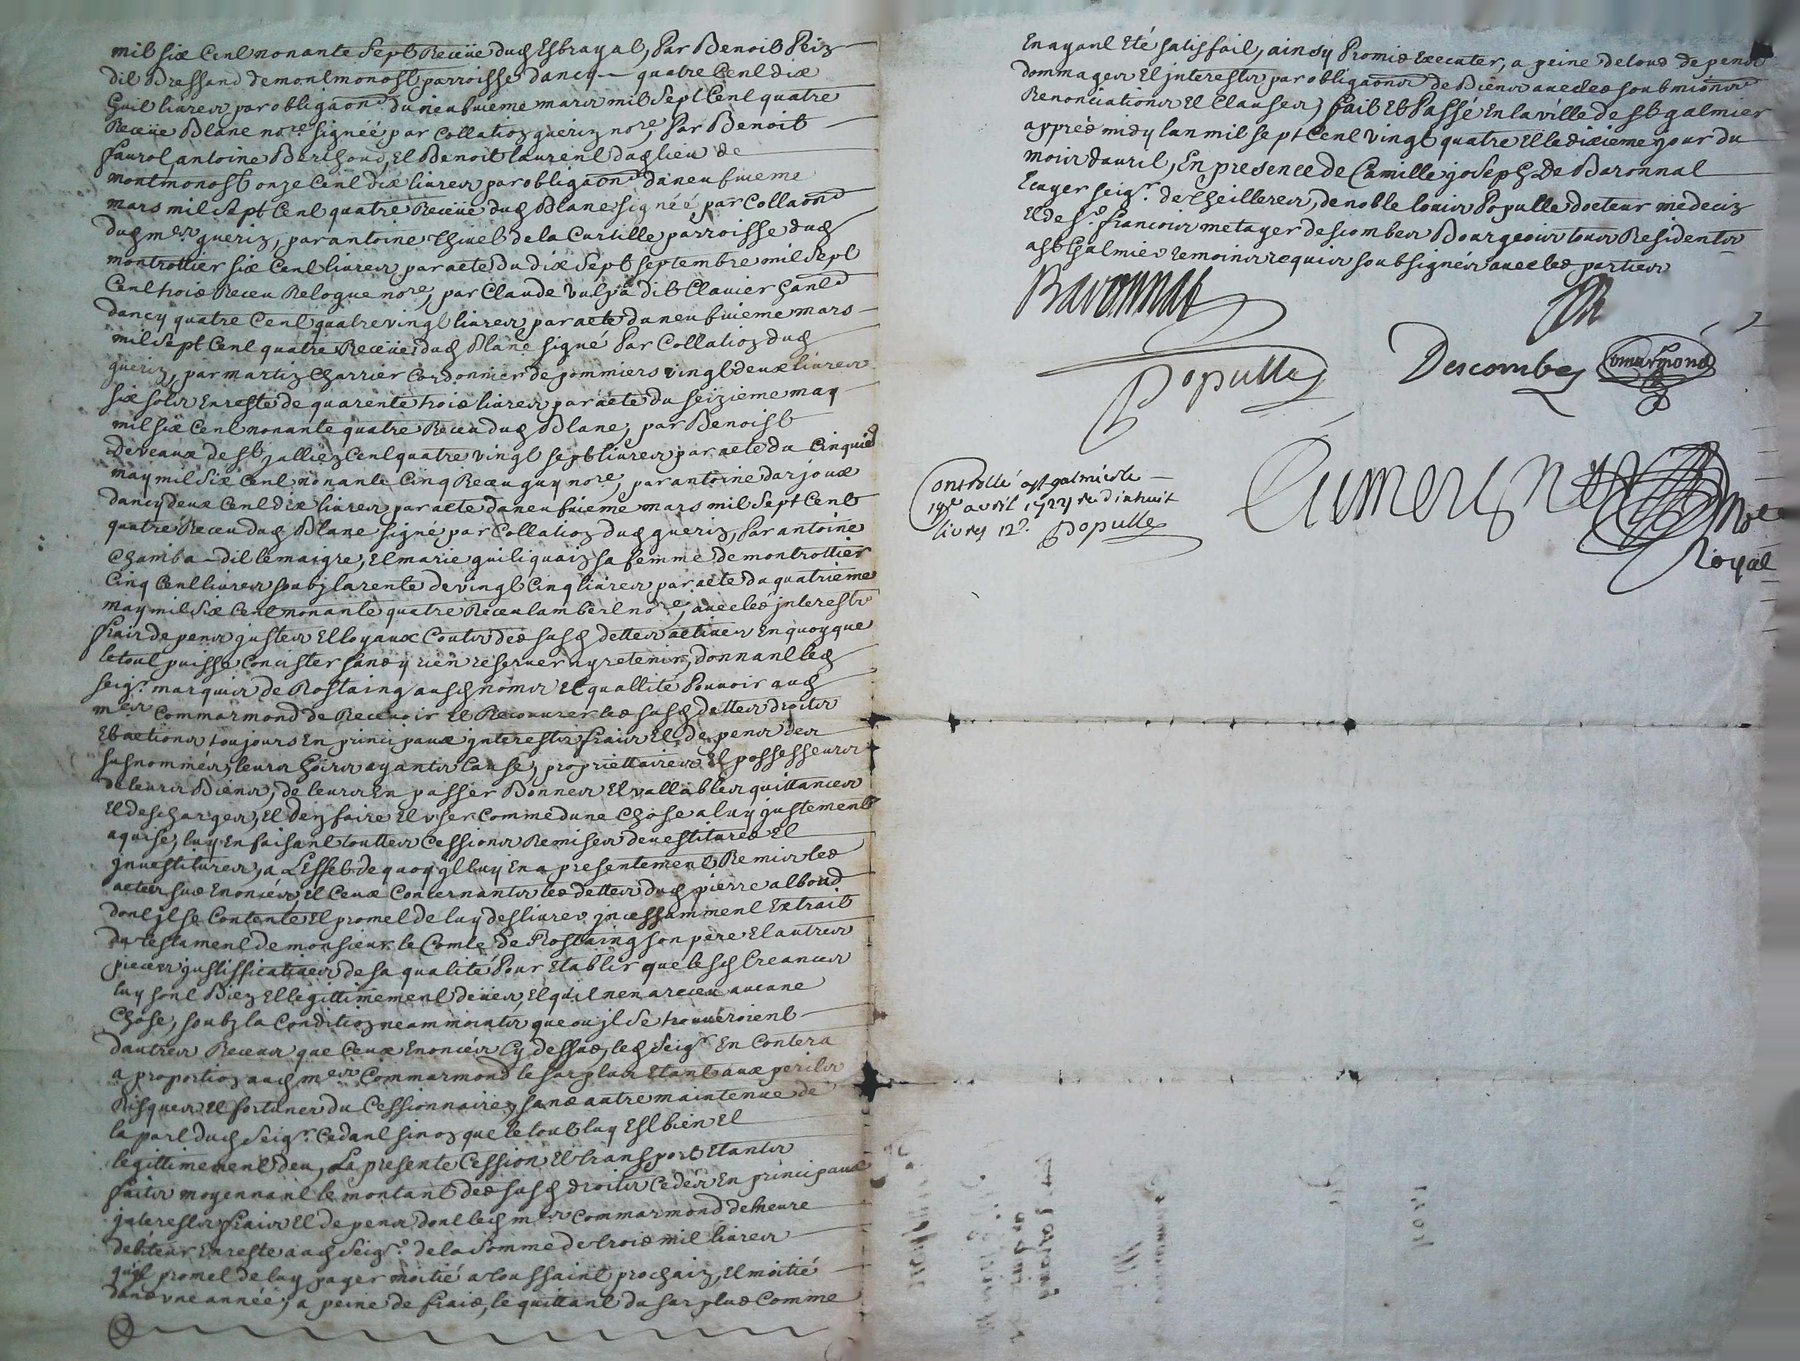 mil six Cent nonante sept Receüe dud Esbrayat, Par Benoit Peiz
dit Bressand de montmonost parroisse dancy — quatre Cent dix
huit livres par obligaon du neufvieme mars mil sept Cent quatre
Receüe Blanc nore signéé par Collation gueriz nore, Par Benoit
faurol, antoine Berthoud, Et Benoit laurent dud lieu de
montmonost onze Cent dix livres par obligaon du neufvieme
mars mil sept Cent quatre Receüe dud Blanc signéé par Collaon
dud mer gueriz, par antoine Thivel de la Curtille parroisse dud
montrottier six Cent livres par acte du dix sept septembre mil sept
Cent trois Receu Relogue nore, par Claude Vulpa dit Clavier hant
dancy quatre Cent quatre vingt livres par acte du neufvieme mars
mil sept Cent quatre Receüe dud Blanc signé Par Collation dud
gueriz, par martiz Charrier Cordonnier de pommiers vingt deux livres
six sols En reste de quarente trois livres par acte du seizieme may
mil six Cent nonante quatre Receu dud Blanc, par Benoist
Deveaux de st Cent quatre vingt sept livres par acte du Cinquie
may mil six Cent nonante Cinq Receu guy nore, par antoine darjoux
dancy deux Cent dix livres par acte du neufvieme mars mil sept Cent
quatre Receu dud Blanc signé par Collation dud gueriz, Par antoine
Chamba — dit le maigre, Et marie sa femme de montrottier
Cinq Cent livres soubz la rente de vingt Cinq livres par acte du quatrieme
may mil six Cent nonante quatre Receu lambert nore, avec les jnterests
frais depens justes Et loyaux Couts des susd dettes actives En quoy que
le tout puisse Concister sans y rien reserver ny retenir, donnant led
seigr marquis de Rostaing ausd noms Et quallité Pouvoir aud
mer Commarmond de Recevoir Et Recouvrer les susd dettes droits
Et actions toujours En principaux jnterests frais Et depens des
susnommés, leurs hoirs ayants Cause, proprietaires Et possesseurs
de leurs Biens, de leurs En passer Bonnes Et vallables quittances
Et descharges, Et den faire Et vser Comme dune Chose a luy justement
aquise, luy En faisant touttes Cessions Remises devestitures Et
jnvestitures, a L'Effet de quoy jl luy En a presentement Remis les
actes sus Enoncés, Et Ceux Concernants les dettes dud pierre albond
dont jl se Contente Et promet de luy deslivrer jncessamment Extrait
du testament de monsieur le Comte de Rostaing son pere Et autres
pieces justifficatives de sa qualité Pour Etablir que lesd Creances
luy sont Bien Et legittimement deües, Et quil nen a receu aucune
Chose, soubz la Condition neammoints que ou jl se trouveroient
dautres Receus que Ceux Enoncés Cy dessus, led seigr En Contera
a proportion aud mer Commarmond le surplus Etant aux perils
Risques Et fortunes du Cessionnaire, sans autre maintenue de
la part dud seigr Cedant sinon que le tout luy Est bien Et
legittimement deu, La presente Cession Et transport Etants
faits moyennant le montant des susd droits Cedés En principaux
jnterests frais Et depens dont led mer Commarmond demeure
debiteur En reste aud seigr de la somme de trois mil livres
qu'jl promet de luy payer moitié a toussaint prochain, Et moitié
dans vne année, a peine de frais, le quittant du surplus Comme
En ayant Eté satisfait, ainsy Promis Executer, a peine de tous depens
dommages Et jnterests par obligaons de Biens avec les soubmions
Renonciations Et Clauses, fait Et Passé En la ville de st galmier
appres midy lan mil sept Cent vingt quatre Et le dixieme jour du
mois davril, En presence de Camille joseph De Baronnat
Ecuyer seigr de Theilleres, de noble louis Populle docteur medecin
Et de sr francois metayer descombes Bourgeois tous Residents
a st Galmier temoins requis soubsignés avec les parties
Baronnat
Populle
Descombes
Comarmond
Controllé a st galmier le
19e avril 1724 Re dixhuit
livres 12s. Populle
Nore
Royal